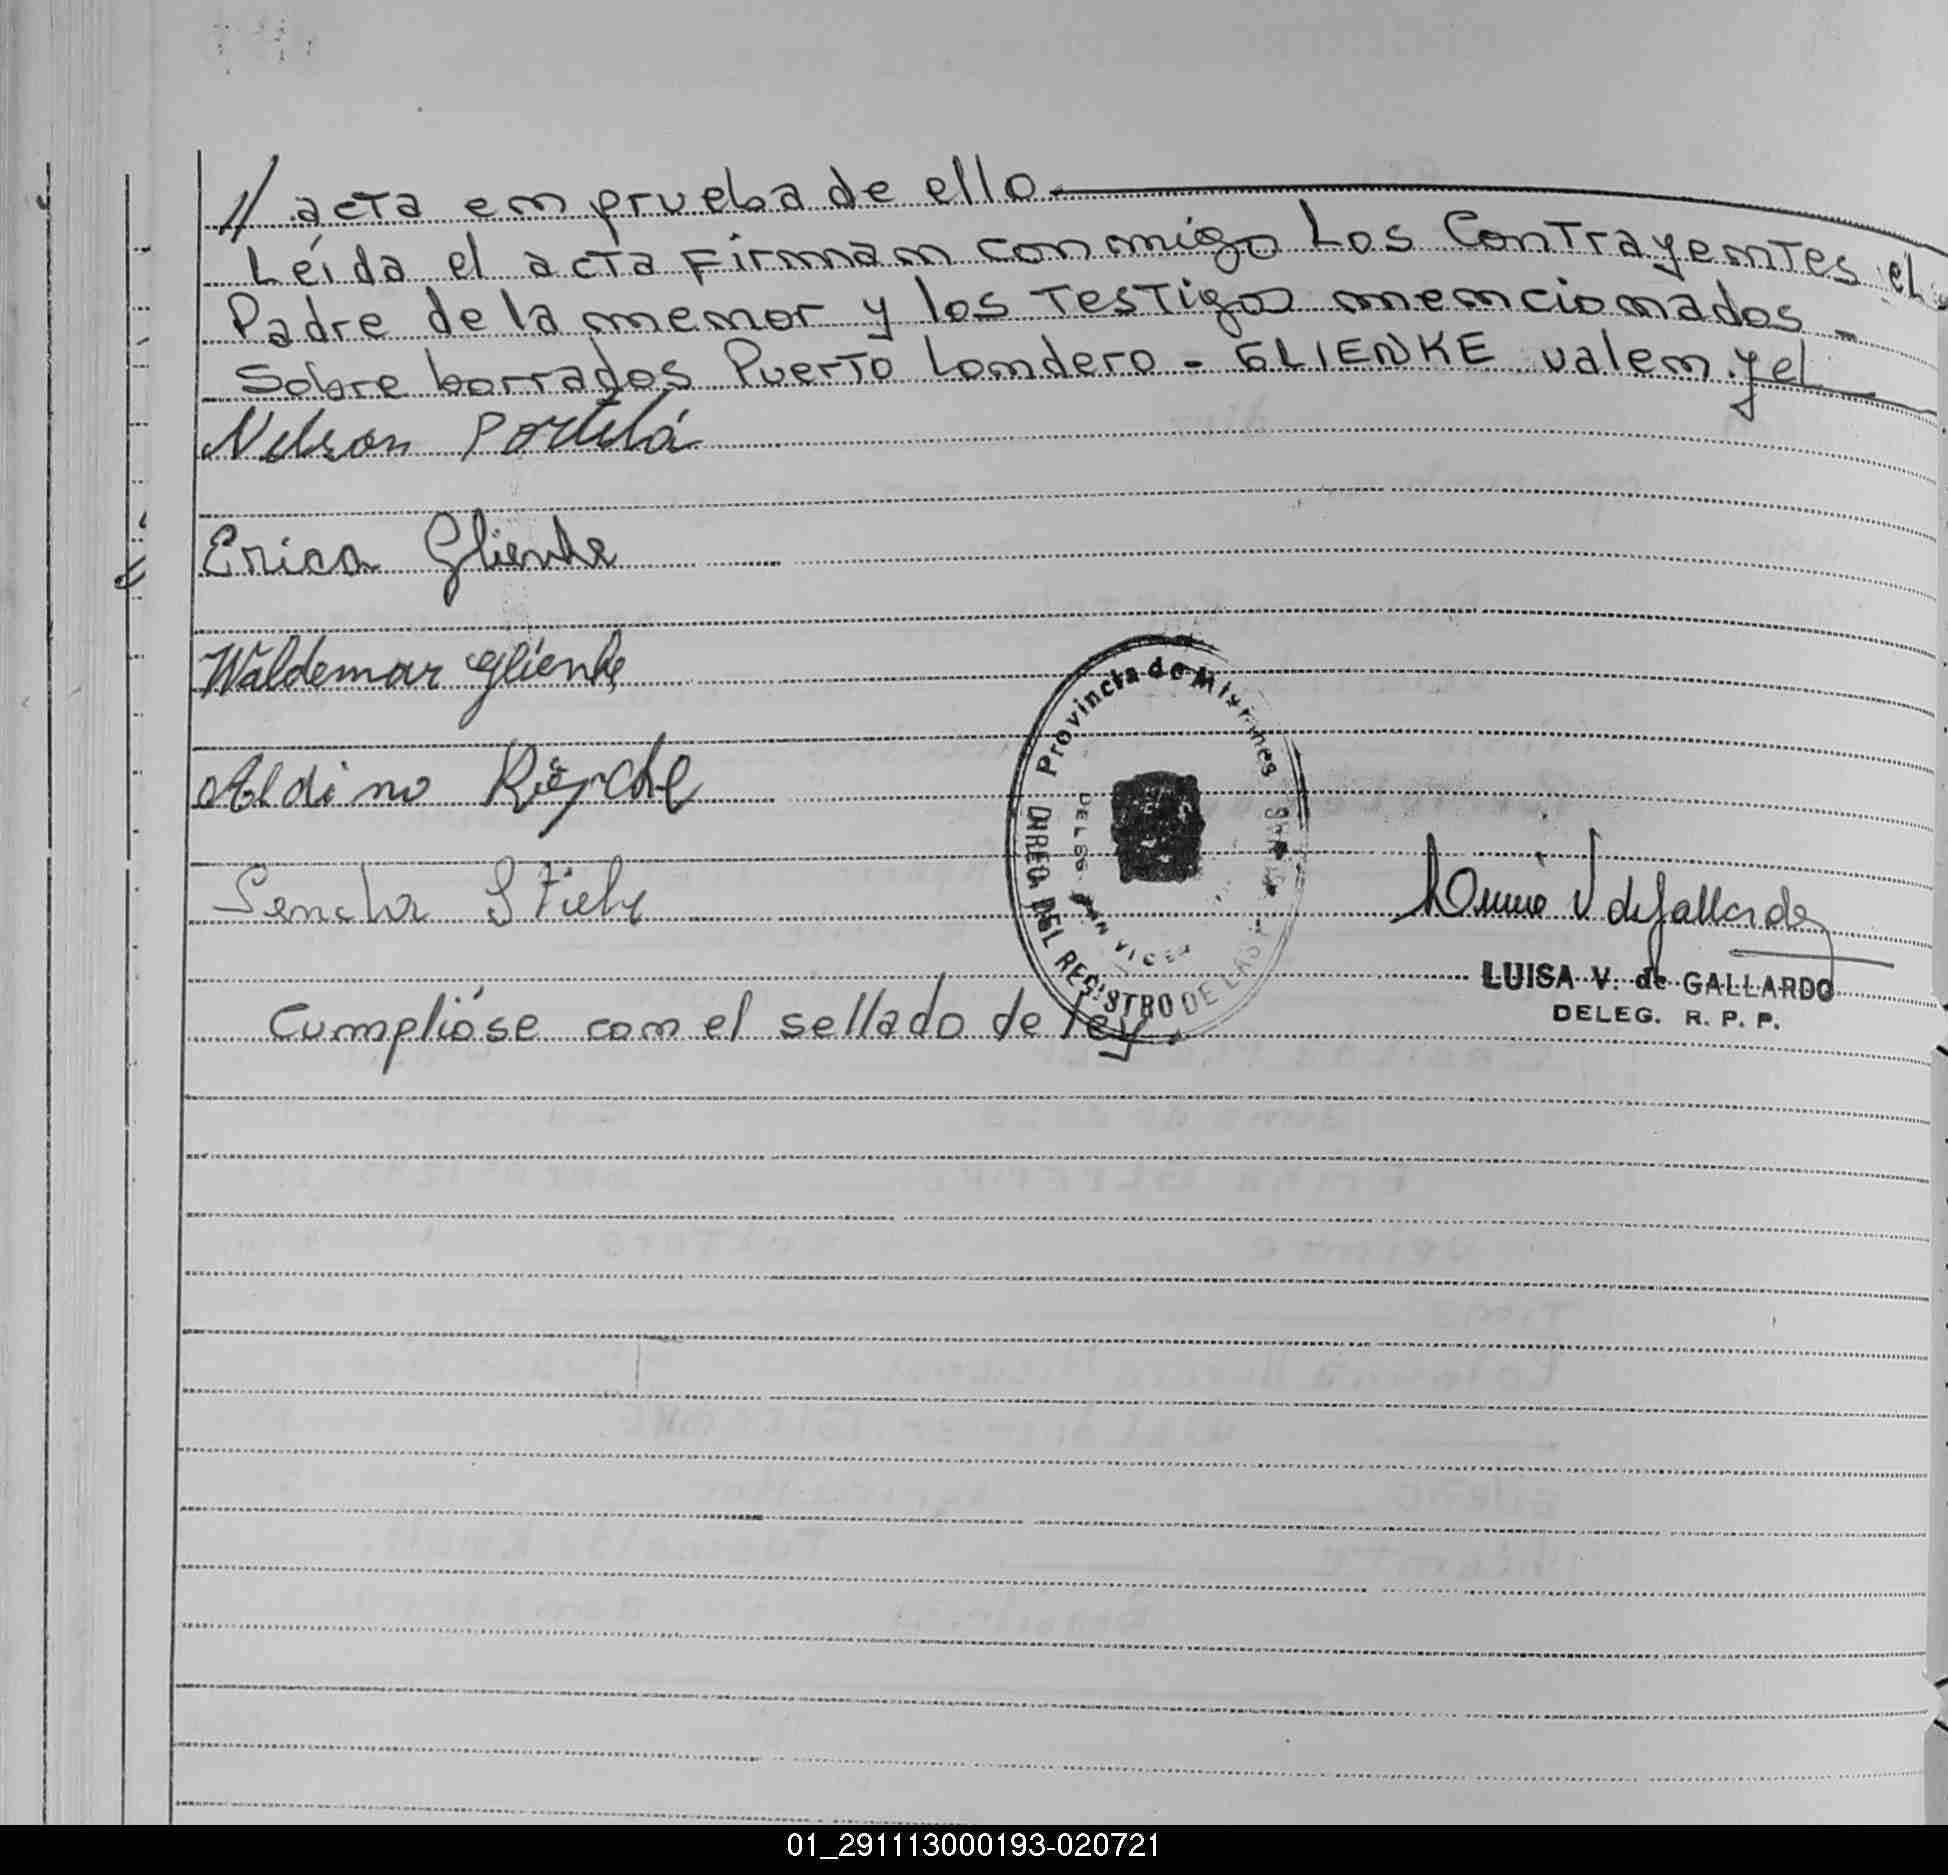 // acta en prueba de ello
Leída el acta Firman conmigo Los Contrayentes el
Padre de la menor y los Testigos mencionados -
Sobre borrados Puerto Londero - GLIENKE valen y el
Nelson Portelá
Erica Glienke
Waldemar Glienke
Aldino
Provincia de Misiones
DIREC. DEL REGISTRO DE LAS
DELEG. SAN VICEN
LUISA V. de GALLARDO
DELEG. R. P. P.
Cumplióse con el sellado de ley.
01_291113000193-020721